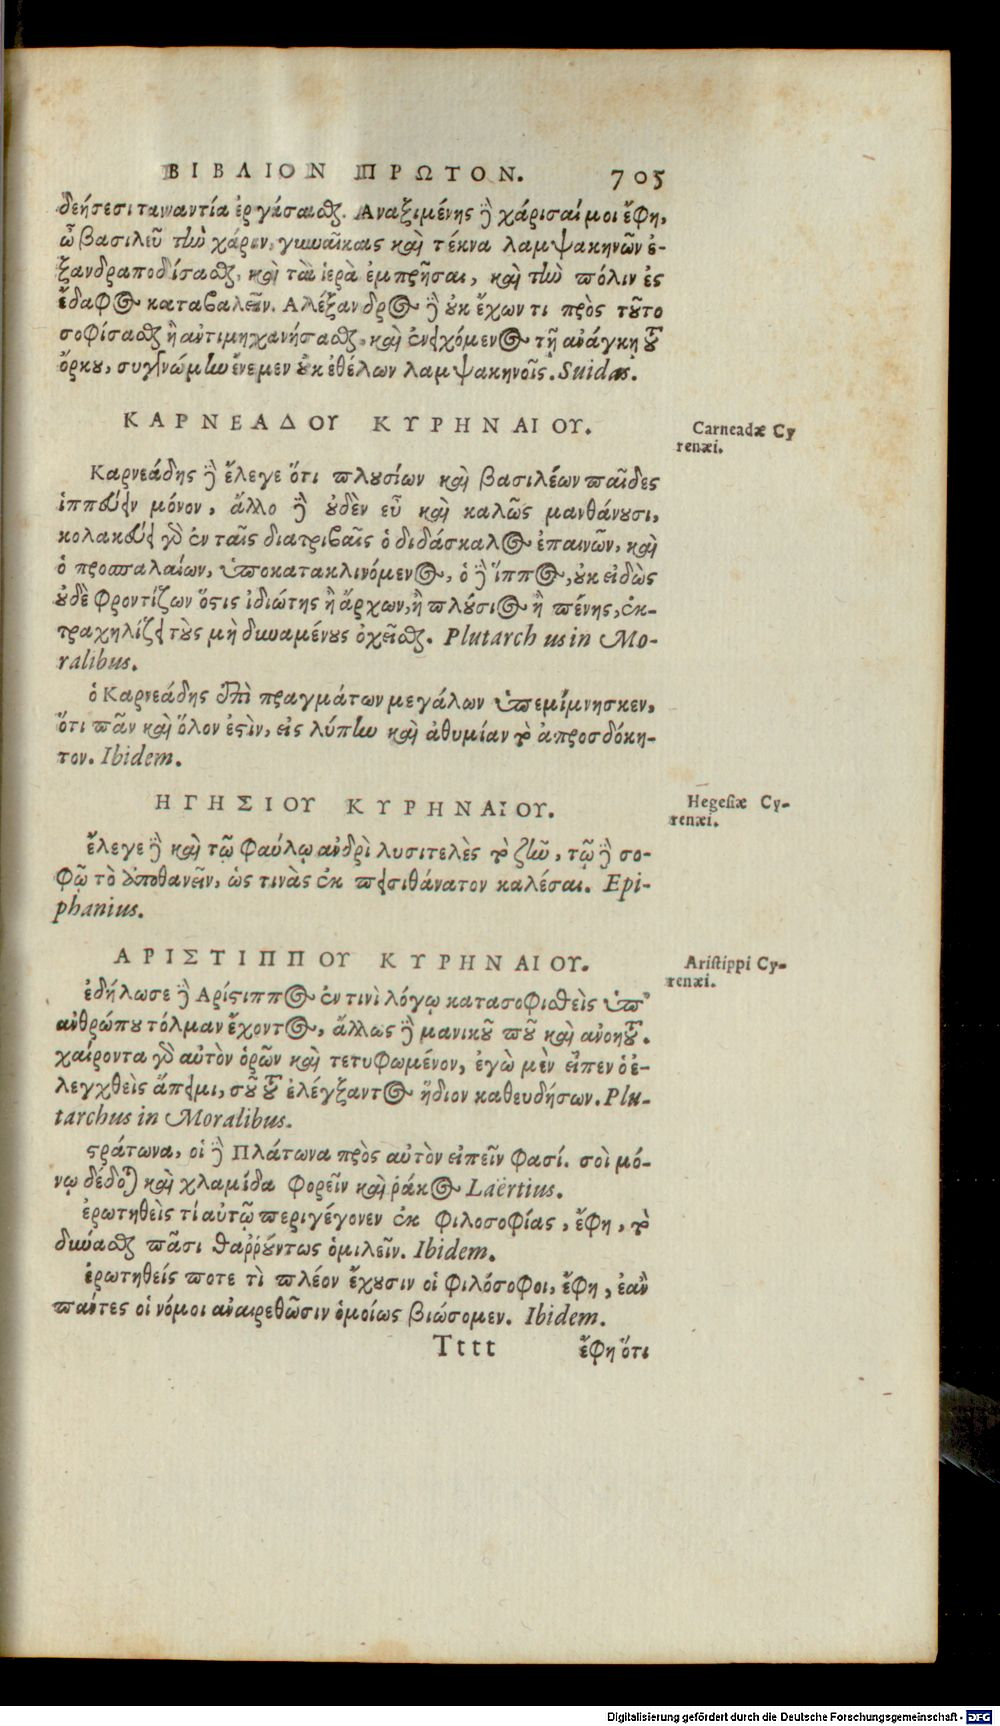 ΒΙΒΛΙΟΝ ΠΡΩΤΟΝ. 705
δεήσεσι τἀναντία ἐργάσασθαι. Ἀναξιμένης δὲ χάρισαί μοι ἔφη,
ὦ βασιλεῦ τὴν χάριν, γυναῖκας καὶ τέκνα λαμψακηνῶν ἐ-
ξανδραποδίσασθαι, καὶ τὰ ἱερὰ ἐμπρῆσαι, καὶ τὴν πόλιν ἐς
ἔδαφος καταβαλεῖν. Αλέξανδρος δὲ οὐκ ἔχων τι πρὸς τοῦτο
σοφίσασθαι ἢ ἀντιμηχανήσασθαι, καὶ ἐνεχόμενος τῇ ἀνάγκῃ τοῦ
ὅρκου, συγγνώμην ἔνεμεν οὐκ ἐθέλων λαμψακηνοῖς. Suidas.
ΚΑΡΝΕΑΔΟΥ ΚΥΡΗΝΑΙΟΥ.
Carneadæ Cy
renæi.
Καρνεάδης δὲ ἔλεγε ὅτι πλουσίων καὶ βασιλέων παῖδες
ἱππεύειν μόνον, ἄλλο δὲ οὐδὲν εὖ καὶ καλῶς μανθάνουσι,
κολακεύει γὰρ ἐν ταῖς διατριβαῖς ὁ διδάσκαλος ἐπαινῶν, καὶ
ὁ προσπαλαίων, ὑποκατακλινόμενος, ὁ δὲ ἵππος, οὐκ εἰδὼς
οὐδὲ φροντίζων ὅστις ἰδιώτης ἢ ἄρχων, ἢ πλούσιος ἢ πένης, ἐκ-
τραχηλίζει τοὺς μὴ δυναμένους ὀχεῖσθαι. Plutarchus in Mo-
ralibus.
ὁ Καρνεάδης ἐπὶ πραγμάτων μεγάλων ὑπεμίμνησκεν,
ὅτι πᾶν καὶ ὅλον ἐστὶν, εἰς λύπην καὶ ἀθυμίαν τὸ ἀπροσδόκη-
τον. Ibidem.
ΗΓΗΣΙΟΥ ΚΥΡΗΝΑΙΟΥ.
Hegesiæ Cy-
renæi.
ἔλεγε δὲ καὶ τῷ φαύλῳ ἀνδρὶ λυσιτελὲς τὸ ζῆν, τῷ δὲ σο-
φῷ τὸ ἀποθανεῖν, ὡς τινὰς ἐκ πεισιθάνατον καλέσαι. Epi-
phanius.
ΑΡΙΣΤΙΠΠΟΥ ΚΥΡΗΝΑΙΟΥ.
Aristippi Cy-
renæi.
ἐδήλωσε δὲ Αρίστιππος ἐν τινὶ λόγῳ κατασοφισθεὶς ὑπ'
ἀνθρώπου τόλμαν ἔχοντος, ἄλλως δὲ μανικοῦ που καὶ ἀνοήτου.
χαίροντα γὰρ αὐτὸν ὁρῶν καὶ τετυφωμένον, ἐγὼ μὲν εἶπεν ὁ ἐ-
λεγχθεὶς ἄπειμι, σοῦ τοῦ ἐλέγξαντος ἥδιον καθευδήσων. Plu-
tarchus in Moralibus.
στράτωνα, οἱ δὲ Πλάτωνα πρὸς αὐτὸν εἰπεῖν φασί. σοὶ μό-
νῳ δέδοται καὶ χλαμίδα φορεῖν καὶ ῥάκος Laërtius.
ἐρωτηθεὶς τί αὐτῷ περιγέγονεν ἐκ φιλοσοφίας, ἔφη, τὸ
δύνασθαι πᾶσι θαῤῥούντως ὁμιλεῖν. Ibidem.
ἐρωτηθείς ποτε τὶ πλέον ἔχουσιν οἱ φιλόσοφοι, ἔφη, ἐὰν
πάντες οἱ νόμοι ἀναιρεθῶσιν ὁμοίως βιώσομεν. Ibidem.
Tttt ἔφη ὅτι
Digitalisierung gefördert durch die Deutsche Forschungsgemeinschaft - DFG